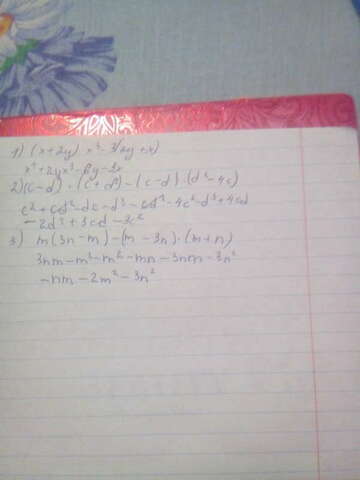 1) (x+2y) x³ - 3(2y + x)
x⁴ + 2yx³ - 6y - 3x
2) (c-d) · (c + d²) - (c-d) · (d² - 4c)
c² + cd² - dc - d³ - cd² - 4c² - d³ + 4cd
- 2d³ + 3cd - 3c²
3) m(3n - m) - (m - 3n) · (m + n)
3nm - m² - m² - mn - 3nm - 3n²
- nm - 2m² - 3n²